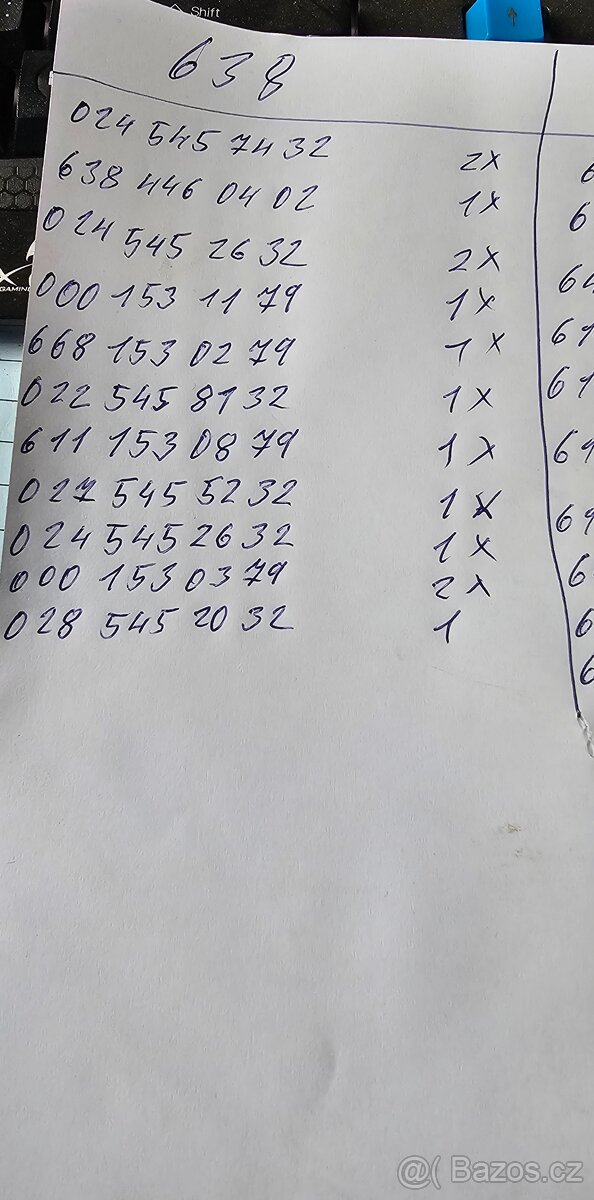 Shift
638
024 545 74 32 2x
638 446 04 02 1x
024 545 26 32 2x
000 153 11 79 1x
668 153 02 79 1x
022 545 81 32 1x
611 153 08 79 1x
027 545 52 32 1x
024 545 26 32 1x
000 153 03 79 2x
028 545 20 32 1
@( Bazos.cz